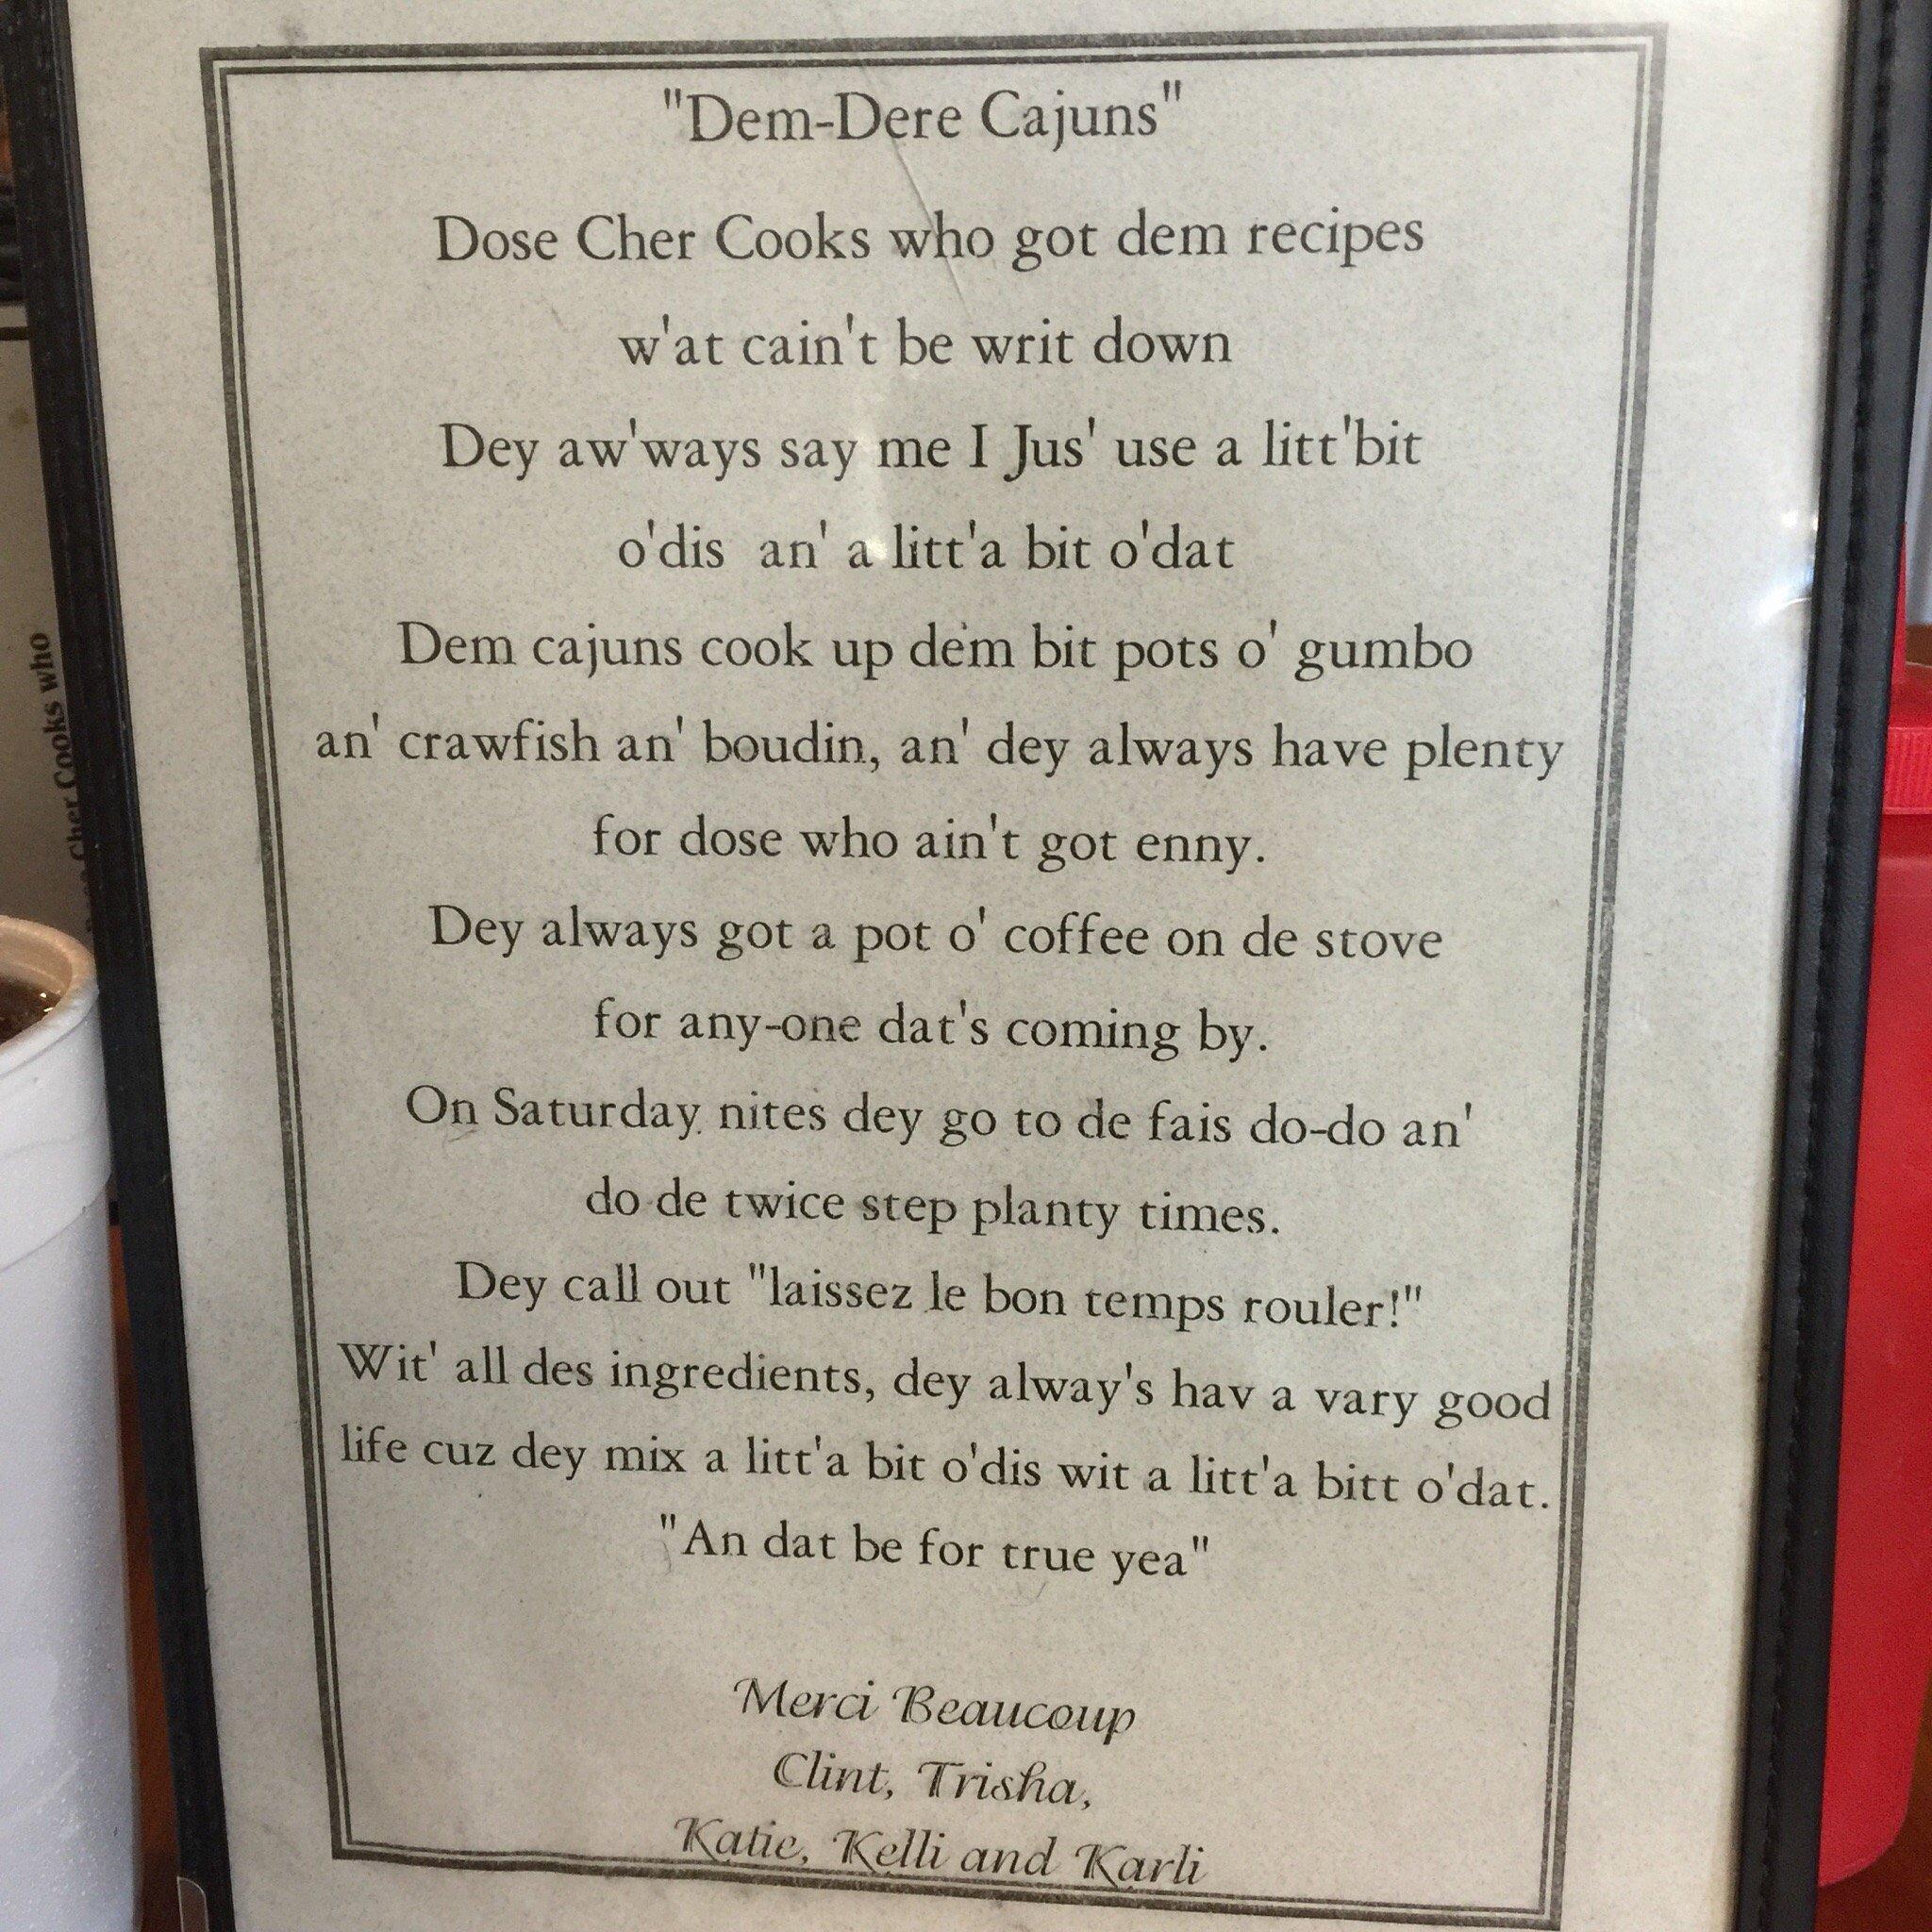 "Dem-Dere Cajuns"
Dose Cher Cooks who got dem recipes
w'at cain't be writ down
Dey aw'ways say me I Jus' use a litt'bit
o'dis an' a litt'a bit o'dat
Dem cajuns cook up dem bit pots o' gumbo
an' crawfish an' boudin, an' dey always have plenty
for dose who ain't got enny.
Dey always got a pot o' coffee on de stove
for any-one dat's coming by.
On Saturday nites dey go to de fais do-do an'
do de twice step planty times.
Dey call out "laissez le bon temps rouler!"
Wit' all des ingredients, dey alway's hav a vary good
life cuz dey mix a litt'a bit o'dis wit a litt'a bitt o'dat.
"An dat be for true yea"
Merci Beaucoup
Clint, Trisha,
Katie, Kelli and Karli
Cher Cooks who